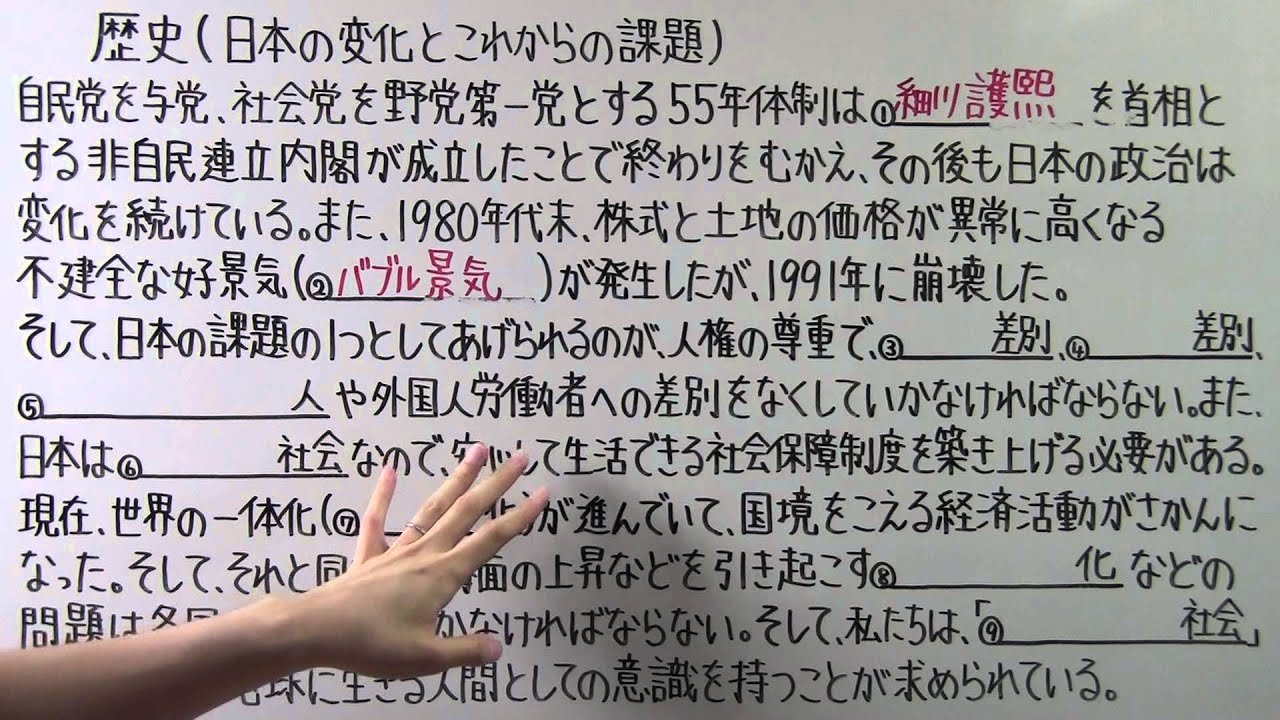 歴史(日本の変化とこれからの課題)
自民党を与党、社会党を野党第一党とする55年体制は①細川護熙を首相と
する非自民連立内閣が成立したことで終わりをむかえ、その後も日本の政治は
変化を続けている。また、1980年代末、株式と土地の価格が異常に高くなる
不建全な好景気(②バブル景気)が発生したが、1991年に崩壊した。
そして、日本の課題の1つとしてあげられるのが、人権の尊重で、③ 差別、④ 差別、
⑤ 人や外国人労働者への差別をなくしていかなければならない。また、
日本は⑥ 社会なので、安心して生活できる社会保障制度を築き上げる必要がある。
現在、世界の一体化(⑦ 化)が進んでいて、国境をこえる経済活動がさかんに
なった。そして、それと同 面の上昇などを引き起こす⑧ 化などの
問題は各国 かなければならない。そして、私たちは、「⑨ 社会」
球に生きる人間としての意識を持つことが求められている。